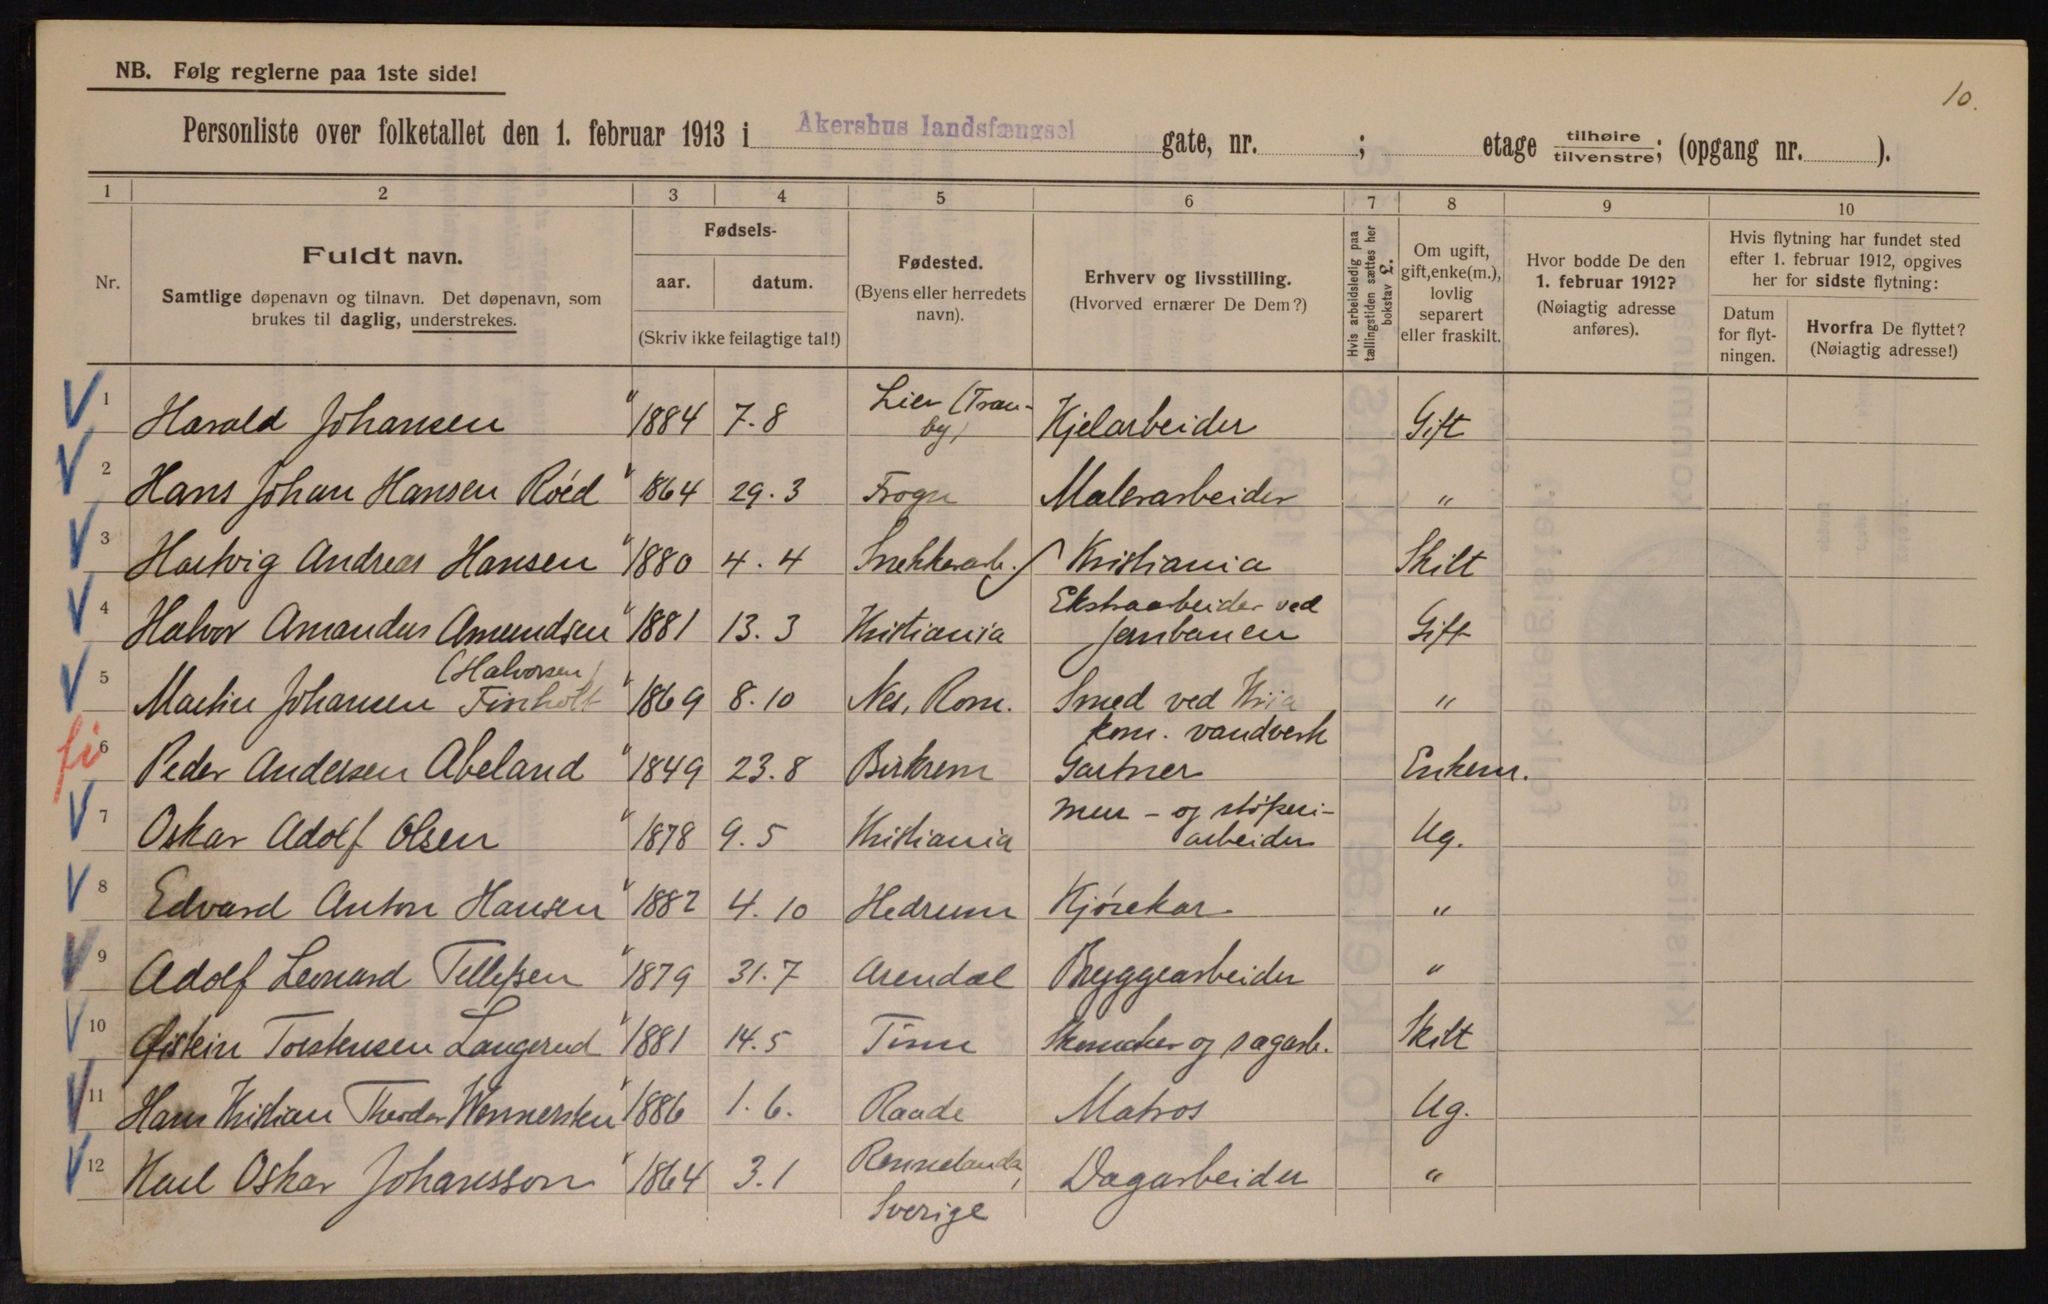 10.
NB. Følg reglerne paa 1ste side!
Personliste over folketallet den 1. februar 1913 i Akershus landsfængsel gate, nr. ; etage tilhøire/tilvenstre; (opgang nr. ).
1 2 3 4 5 6 7 8 9 10
Nr.
Fuldt navn.
Samtlige døpenavn og tilnavn. Det døpenavn, som
brukes til daglig, understrekes.
Fødsels-
aar. datum.
(Skriv ikke feilagtige tal!)
Fødested.
(Byens eller herredets
navn).
Erhverv og livsstilling.
(Hvorved ernærer De Dem?)
Hvis arbeidsledig paa
tællingstiden sættes her
bokstav L.
Om ugift,
gift, enke(m.),
lovlig
separert
eller fraskilt.
Hvor bodde De den
1. februar 1912?
(Nøiagtig adresse
anføres).
Hvis flytning har fundet sted
efter 1. februar 1912, opgives
her for sidste flytning:
Datum
for flyt-
ningen.
Hvorfra De flyttet?
(Nøiagtig adresse!)
1 Harald Johansen 1884 7.8 Lier (Tran-
by) Kjelarbeider Gift
2 Hans Johan Hansen Röed 1864 29.3 Frogn Malerarbeider "
3 Hartvig Andreas Hansen 1880 4.4 Snekkerarb. Kristiania Skilt
4 Halvor Amandus Amundsen 1881 13.3 Kristiania Ekstraarbeider ved
Jernbanen Gift
5 Martin Johansen (Halvorsen)
Finholt 1869 8.10 Nes, Rom. Smed ved Kria
kom. vandverk "
6 Peder Andersen Abeland 1849 23.8 Birkrem Gartner Enkem.
7 Oskar Adolf Olsen 1878 9.5 Kristiania Mur- og støperi-
arbeider Ug.
8 Edvard Anton Hansen 1882 4.10 Hedrum Kjørekar "
9 Adolf Leonard Tellefsen 1879 31.7 Arendal Bryggearbeider "
10 Øistein Torstensen Langerud 1881 14.5 Tinn Skomaker og sagarb. Skilt
11 Hans Kristian Theodor Wennersten 1886 1.6. Raade Matros Ug.
12 Karl Oskar Johansson 1864 3.1 Rennelanda,
Sverige Dagarbeider "